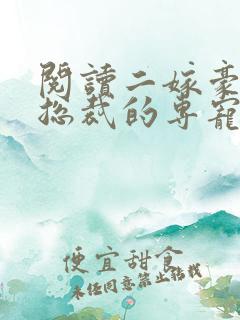 閱讀二嫁豪
总裁的专宠
便宜甜食
未经同意禁止转载